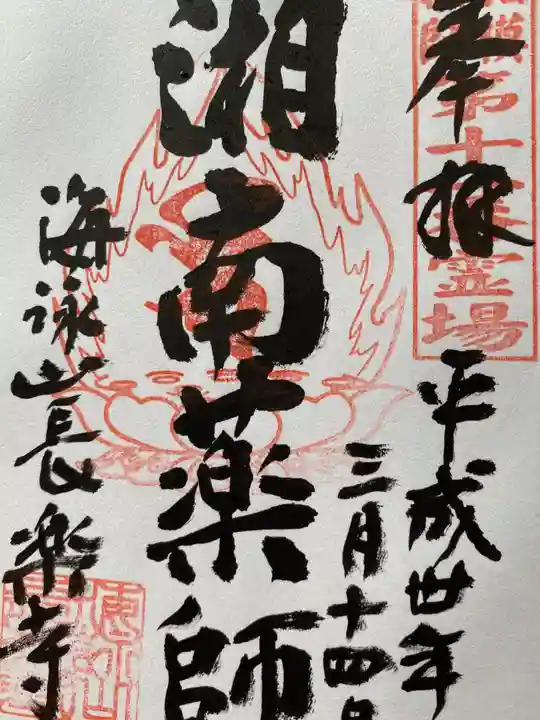 奉拝
第十霊場
平成卅年
三月十四日
湘南薬師
海詠山長楽寺